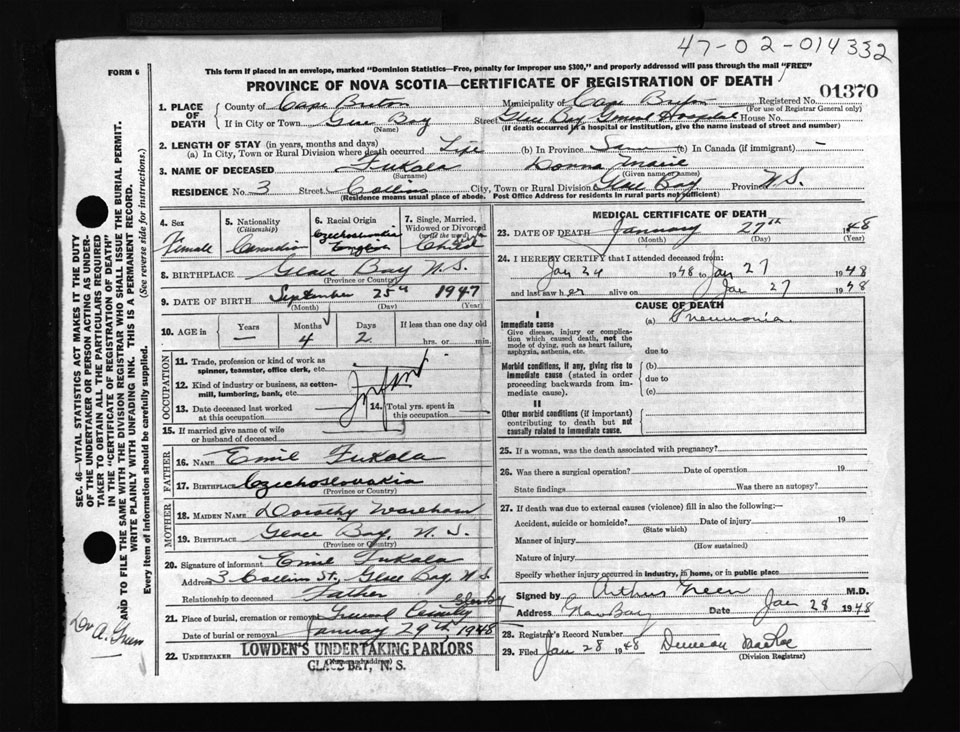 47-02-014332
FORM 6
This form if placed in an envelope, marked "Dominion Statistics—Free, penalty for improper use $300," and properly addressed will pass through the mail "FREE"
PROVINCE OF NOVA SCOTIA—CERTIFICATE OF REGISTRATION OF DEATH
01370
1. PLACE OF DEATH County of Cape Breton Municipality of Cape Breton Registered No.
(For use of Registrar General only)
If in City or Town Glace Bay Street Glace Bay General Hospital House No.
(Name) (If death occurred in a hospital or institution, give the name instead of street and number)
2. LENGTH OF STAY (in years, months and days)
(a) In City, Town or Rural Division where death occurred Life (b) In Province Same (c) In Canada (if immigrant) —
3. NAME OF DECEASED Fukala Donna Marie
(Surname) (Given names)
RESIDENCE No. 3 Street Collins City, Town or Rural Division Glace Bay Province N.S.
(Residence means usual place of abode. Post Office Address for residents in rural parts not sufficient)
4. Sex Female
5. Nationality (Citizenship) Canadian
6. Racial Origin Czechoslovakia English
7. Single, Married, Widowed or Divorced (write the word) Child
8. BIRTHPLACE Glace Bay N.S.
(Province or Country)
9. DATE OF BIRTH September 25th 1947
(Month) (Day) (Year)
10. AGE in Years Months Days If less than one day old
— 4 2 hrs. or min.
OCCUPATION
11. Trade, profession or kind of work as spinner, teamster, office clerk, etc.
12. Kind of industry or business, as cotton-mill, lumbering, bank, etc.
Infant
13. Date deceased last worked at this occupation
14. Total yrs. spent in this occupation
15. If married give name of wife or husband of deceased
FATHER
16. NAME Emil Fukala
17. BIRTHPLACE Czechoslovakia
(Province or Country)
MOTHER
18. MAIDEN NAME Dorothy Wareham
19. BIRTHPLACE Glace Bay, N.S.
(Province or Country)
20. Signature of informant Emil Fukala
Address 3 Collins St., Glace Bay, N.S.
Relationship to deceased Father
21. Place of burial, cremation or removal
Date of burial or removal January 29th, 1948
22. UNDERTAKER LOWDEN'S UNDERTAKING PARLORS
(Name and address)
GLACE BAY, N. S.
MEDICAL CERTIFICATE OF DEATH
23. DATE OF DEATH January 27th 1948
(Month) (Day) (Year)
24. I HEREBY CERTIFY that I attended deceased from:
Jan 24 1948 to Jan 27 1948
and last saw her alive on Jan 27 1948
CAUSE OF DEATH
I
Immediate cause (a) Pneumonia
Give disease, injury or complication which caused death, not the mode of dying, such as heart failure, asphyxia, asthenia, etc.
due to
Morbid conditions, if any, giving rise to immediate cause (stated in order proceeding backwards from immediate cause).
(b)
due to
(c)
II
Other morbid conditions (if important) contributing to death but not causally related to immediate cause.
25. If a woman, was the death associated with pregnancy?
26. Was there a surgical operation? Date of operation 19
State findings Was there an autopsy?
27. If death was due to external causes (violence) fill in also the following:—
Accident, suicide or homicide? Date of injury 19
(State which)
Manner of injury
(How sustained)
Nature of injury
Specify whether injury occurred in industry, in home, or in public place
Signed by Arthur Green M.D.
Address Glace Bay Date Jan 28 1948
28. Registrar's Record Number
29. Filed Jan 28 1948 Duncan
(Division Registrar)
SEC. 46—VITAL STATISTICS ACT MAKES IT THE DUTY
OF THE UNDERTAKER OR PERSON ACTING AS UNDER-
TAKER TO OBTAIN ALL THE PARTICULARS REQUIRED
IN THE "CERTIFICATE OF REGISTRATION OF DEATH"
AND TO FILE THE SAME WITH THE DIVISION REGISTRAR WHO SHALL ISSUE THE BURIAL PERMIT.
WRITE PLAINLY WITH UNFADING INK. THIS IS A PERMANENT RECORD.
Every item of information should be carefully supplied. (See reverse side for instructions.)
Dr A. Green